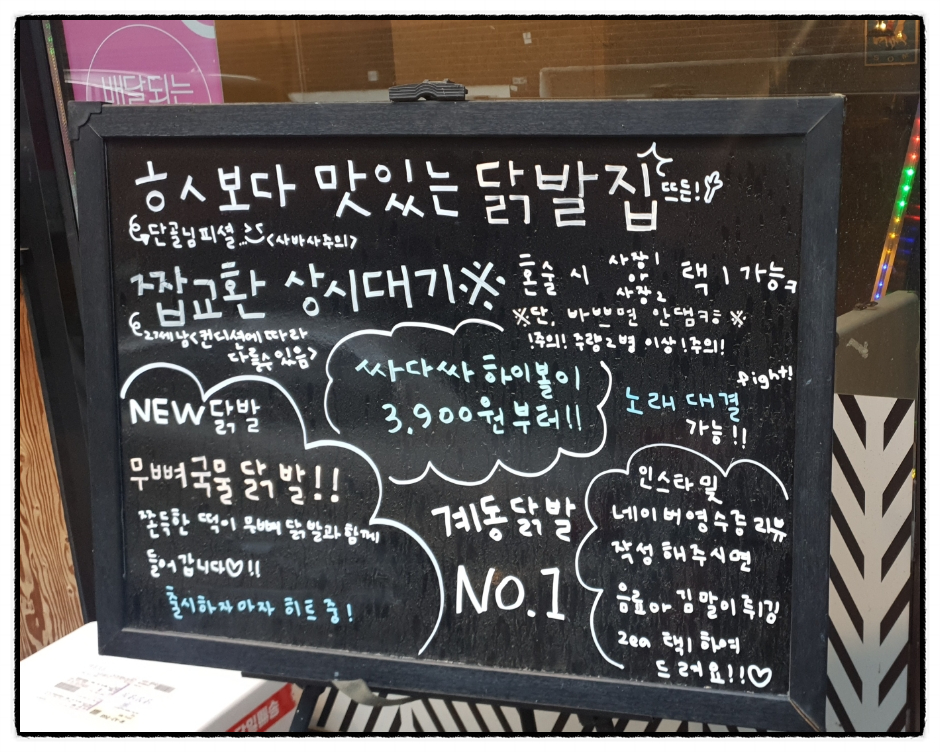 배달되는
ㅎㅅ보다 맛있는 닭발집 뜨든!
단골님피셜..<사바사주의>
짭교환 상시대기※
2제낭<컨디션에 따라
다를수있음>
혼술 시 사장1 택 1 가능
사장2
※단, 바쁘면 안댐ㅋㅎ※
!주의! 주량2병 이상!주의!
싸다싸 하이볼이
3,900원부터!!
fight!
노래 대결
가능!!
NEW 닭발
무뼈국물 닭발!!
쫀득한 떡이 무뼈 닭발과 함께
들어갑니다♡!!
출시하자마자 히트중!
계동닭발
NO.1
인스타 및
네이버영수증 리뷰
작성 해주시면
음료나 김말이튀김
2ea 택1하여
드려요!!♡